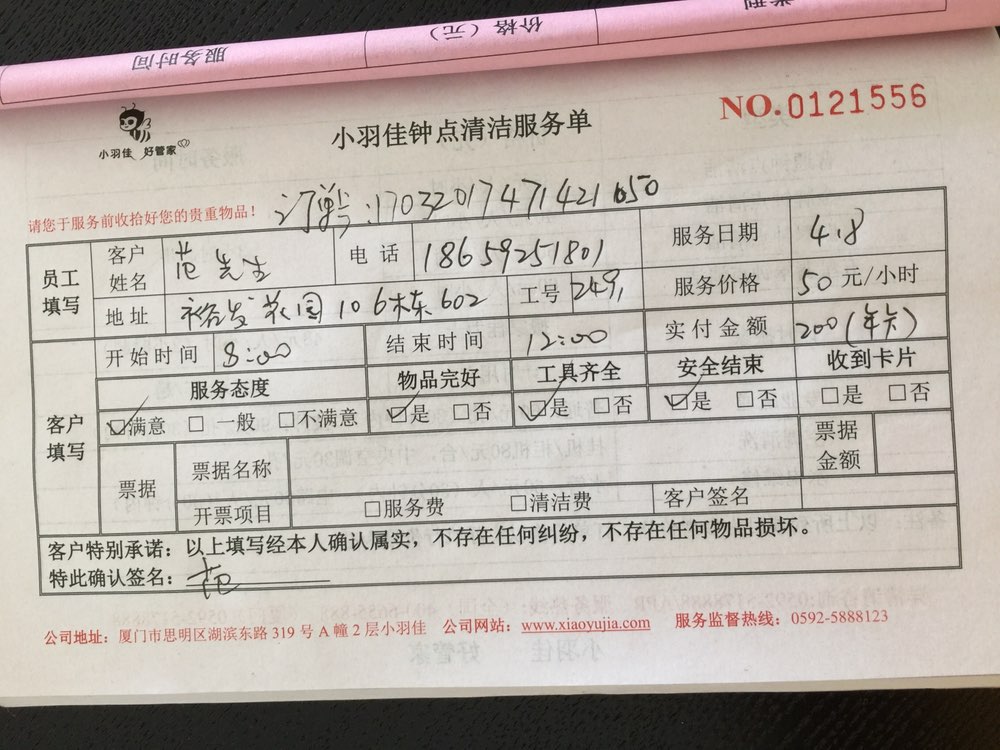 服务时间 价格（元） 类型
小羽佳 好管家
小羽佳钟点清洁服务单
NO.0121556
请您于服务前收拾好您的贵重物品！
订单号:17032017471421650
员工填写 客户姓名 范先生 电话 18659251801 服务日期 4.8
地址 裕发花园106栋602 工号 2491 服务价格 50元/小时
客户填写 开始时间 8:00 结束时间 12:00 实付金额 200(年卡)
服务态度 物品完好 工具齐全 安全结束 收到卡片
☑满意 □一般 □不满意 ☑是 □否 ☑是 □否 ☑是 □否 □是 □否
票据 票据名称 票据金额
开票项目 □服务费 □清洁费 客户签名
客户特别承诺：以上填写经本人确认属实，不存在任何纠纷，不存在任何物品损坏。
特此确认签名：范
公司地址：厦门市思明区湖滨东路319号A幢2层小羽佳 公司网站：www.xiaoyujia.com 服务监督热线：0592-5888123